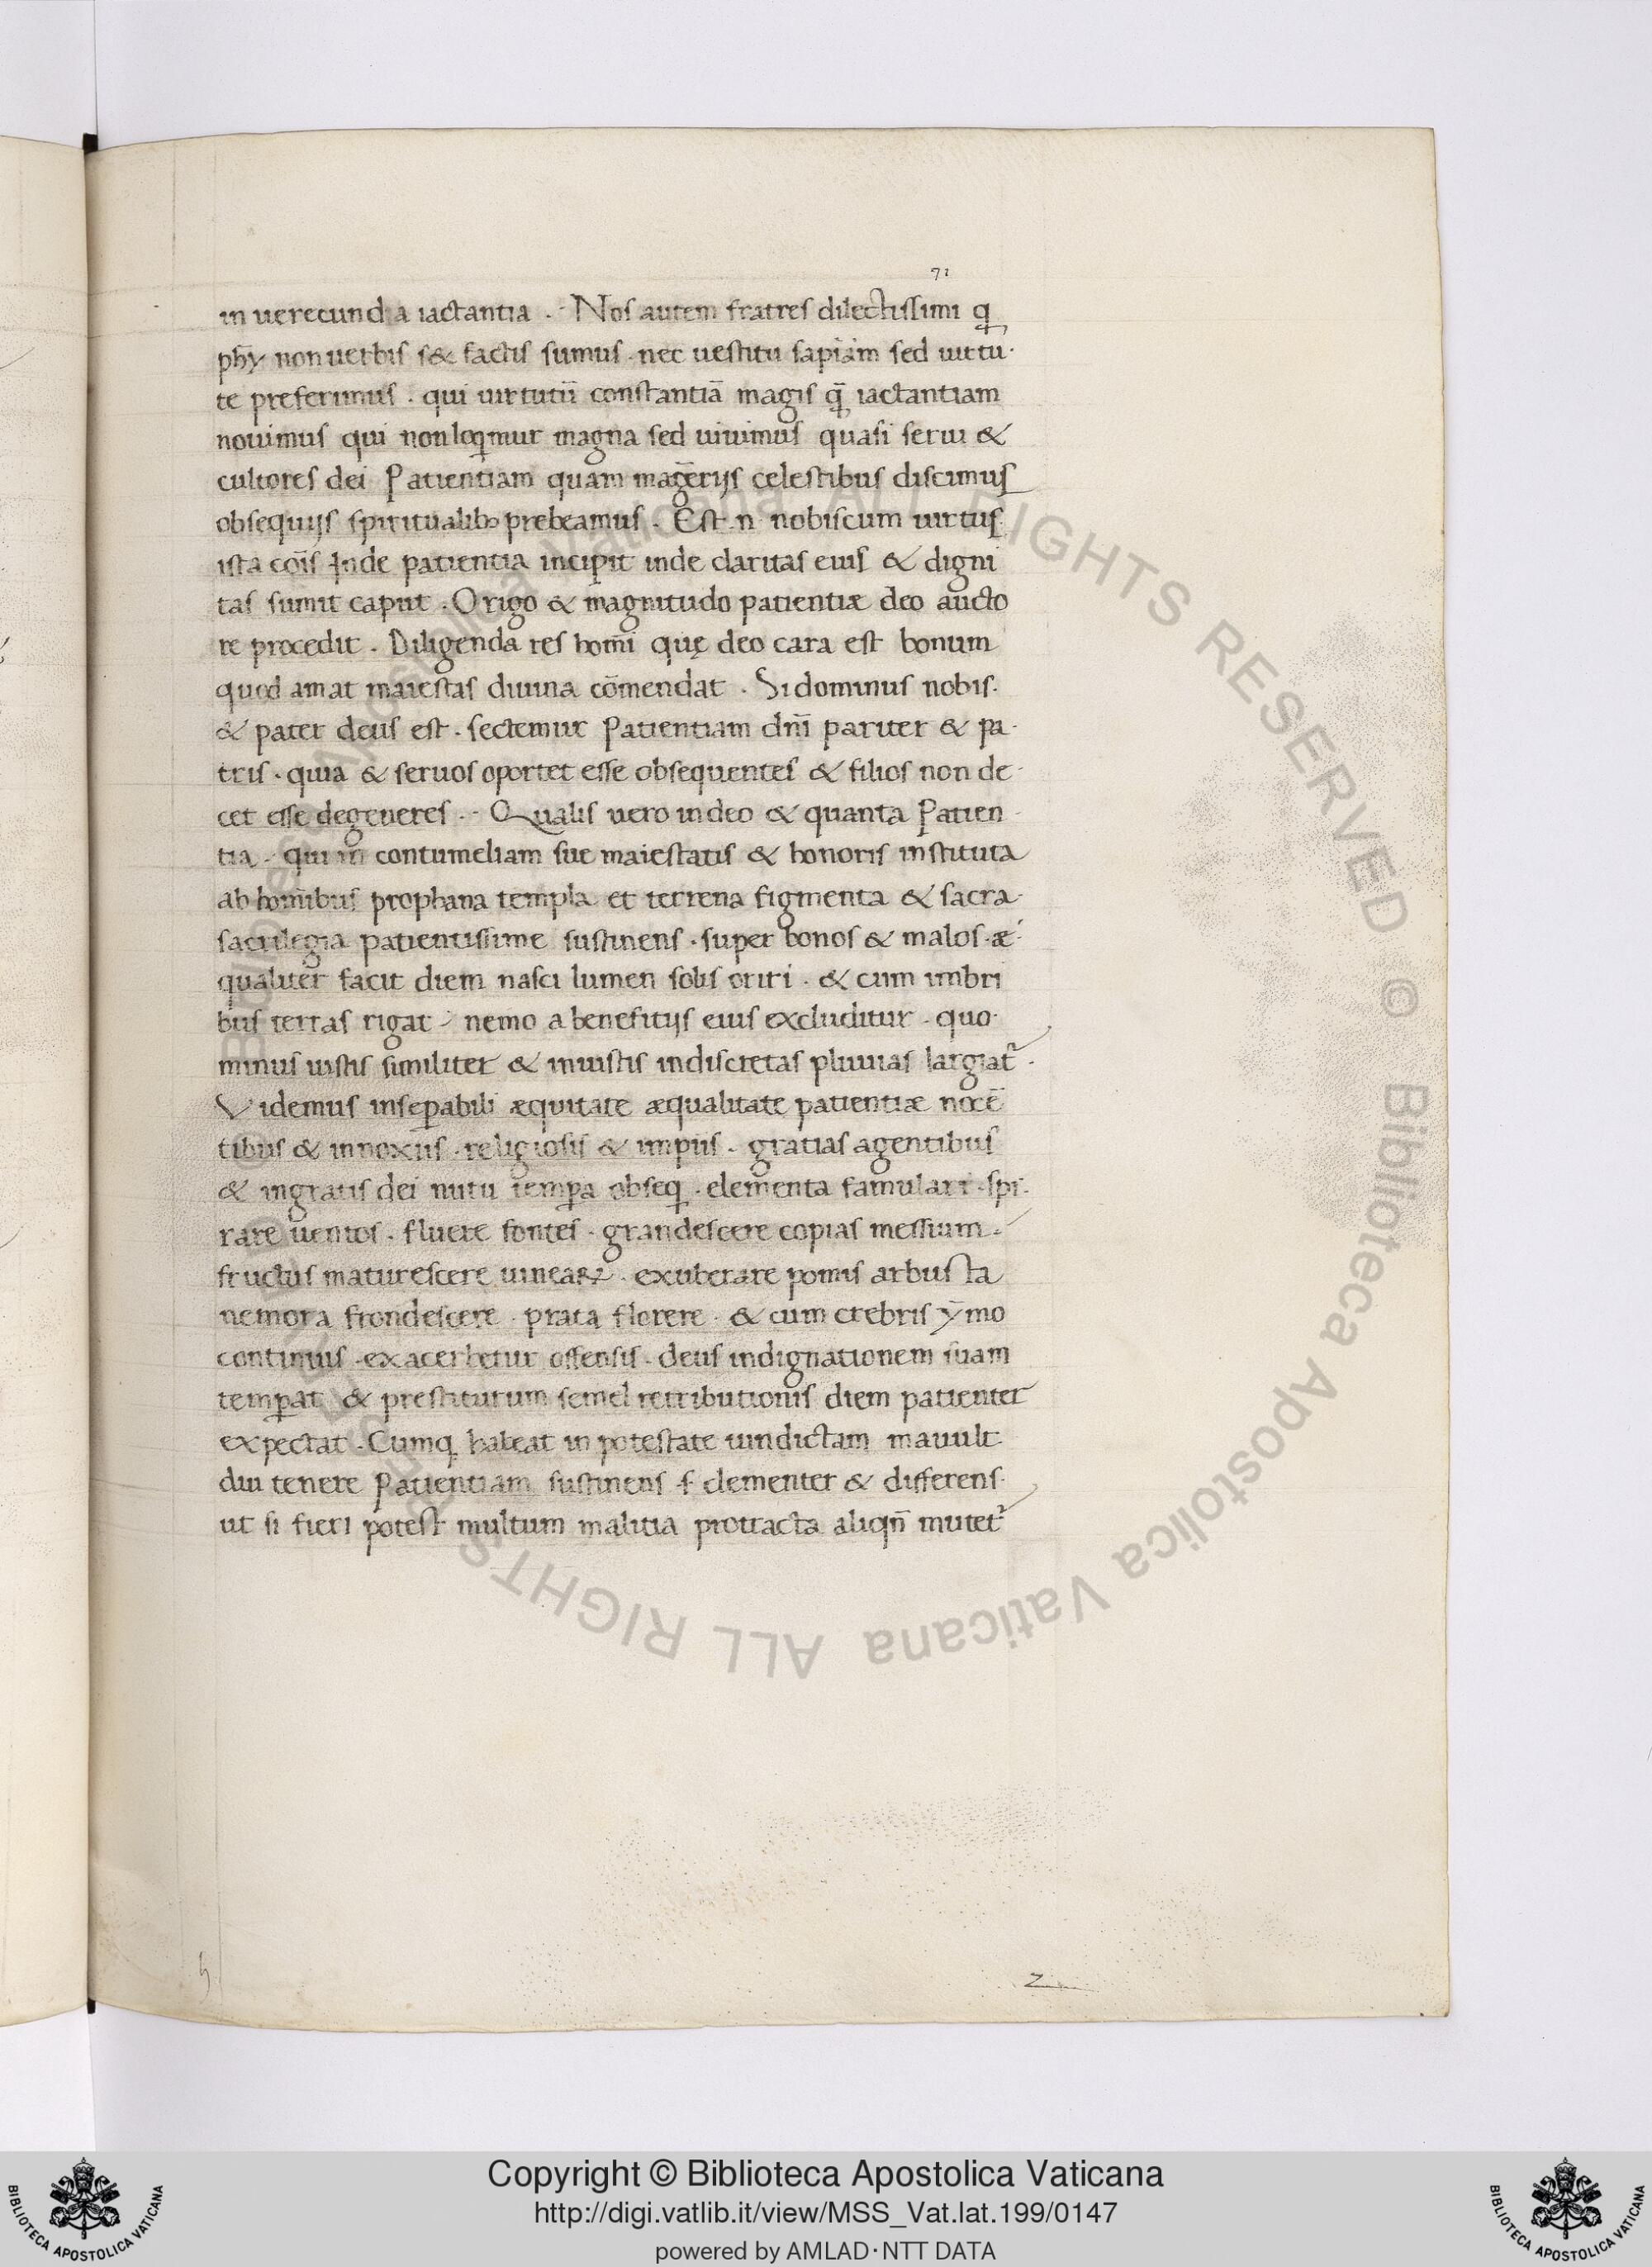 71
in uerecund a iactantia . Nos autem fratres dilectissimi q
phy non uerbis s& factis sumus . nec uestitu sapiam sed uirtu
te preferimus . qui uirtutū constantiā magis q̄ iactantiam
nouimus qui non loqmur magna sed uiuimus quasi serui &
cultores dei Patientiam quam magēriis celestibus discimus
obsequiis spiritualib; prebeamus . Est .n. nobiscum uirtus
ista cōis Inde patientia incipit inde claritas eius & digni
tas sumit caput . Origo & magnitudo patientiæ deo aucto
re procedit . Diligenda res homī quę deo cara est bonum
quod amat maiestas diuina cōmendat . Si dominus nobis .
& pater deus est . sectemur Patientiam dn̄i pariter & pa
tris . quia & seruos oportet esse obsequentes & filios non de
cet esse degeneres . Qualis uero in deo & quanta Patien
tia . qui in contumeliam sue maiestatis & honoris instituta
ab homībus prophana templa et terrena figmenta & sacra
sacrilegia patientissime sustinens . super bonos & malos æ
qualiter facit diem nasci lumen solis oriri . & cum imbri
bus terras rigat nemo a benefitiis eius excluditur . quo
minus iustis similiter & iniustis indiscretas pluuias largiat᷑ .
Videmus insepabili æquitate æqualitate patientiæ nocē
tibus & innoxiis . religiosis & impiis . gratias agentibus
& ingratis dei nutu tempa obseq . elementa famulari . spi
rare uentos . fluere fontes . grandescere copias messium .
fructus maturescere uineaꝝ . exuberare pomis arbusta
nemora frondescere . prata florere . & cum crebris ȳmo
continuis . exacerbetur offensis . deus indignationem suam
tempat & prestitutum semel retributionis diem patienter
expectat . Cumq habeat in potestate uindictam mauult
diu tenere Patientiam sustinens .s. clementer & differens
ut si fieri potest multum malitia protracta aliqn̄ mutet᷑
Copyright © Biblioteca Apostolica Vaticana
http://digi.vatlib.it/view/MSS_Vat.lat.199/0147
powered by AMLAD·NTT DATA
BIBLIOTECA APOSTOLICA VATICANA
BIBLIOTECA APOSTOLICA VATICANA